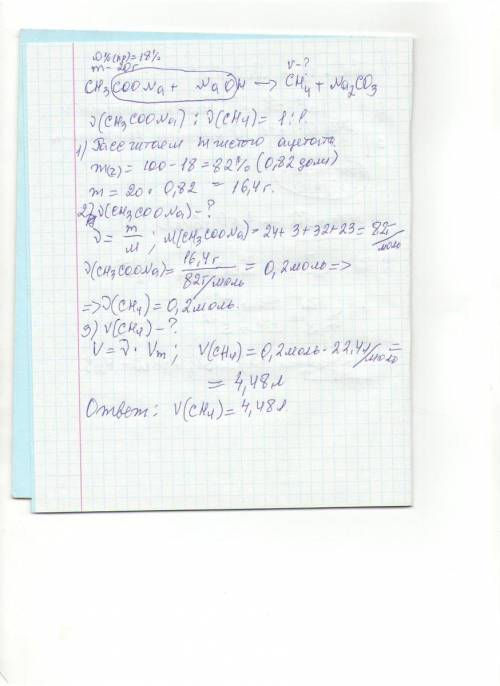 ω%(пр)=18%
m = 20г
V-?
CH₃COONa + NaOH → CH₄ + Na₂CO₃
ν(CH₃COONa) : ν(CH₄) = 1:1.
1) Рассчитаем m чистого ацетата
= 100 - 18 = 82% (0,82 доли)
m = 20 · 0,82 = 16,4 г.
2) ν(CH₃COONa) - ?
ν = m/M ; M(CH₃COONa) = 24 + 3 + 32 + 23 = 82 г/моль
ν(CH₃COONa) = 16,4 г / 82 г/моль = 0,2 моль =>
=> ν(CH₄) = 0,2 моль.
3) V(CH₄) - ?
V = ν · Vm ; V(CH₄) = 0,2 моль · 22,4 л/моль =
= 4,48 л
Ответ: V(CH₄) = 4,48 л